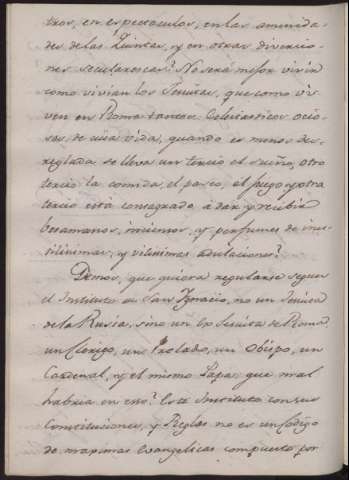 tros, en espectaculos, en las amenida-
des de las Quintas, y en otras divercio-
nes secularescas? No será mejor vivir
como vivian los Jesuitas, que como vi-
ven en Roma tantos Eclesiasticos ocio-
sos, de una vida, quando es menos des-
reglada se lleva un tercio el sueño, otro
tercio la comida, el paseo, el juego y otra
tercio está consagrado à dar, y recibir
besamanos, inciensos, y perfumes de inu-
tilisimas, y vilisimas adulaciones?
Demos, que quiera regularse segun
el Instituto de San Ignacio, no un Jesuita
de la Rusia, sino un Ex Jesuita de Roma,
un Clerigo, un Prelado, un Obispo, un
Cardenal, y el mismo Papa: que mal
habria en eso? Este Instituto con sus
Constituciones, y Reglas no es un Codigo
de maximas Evangelicas compuesto por